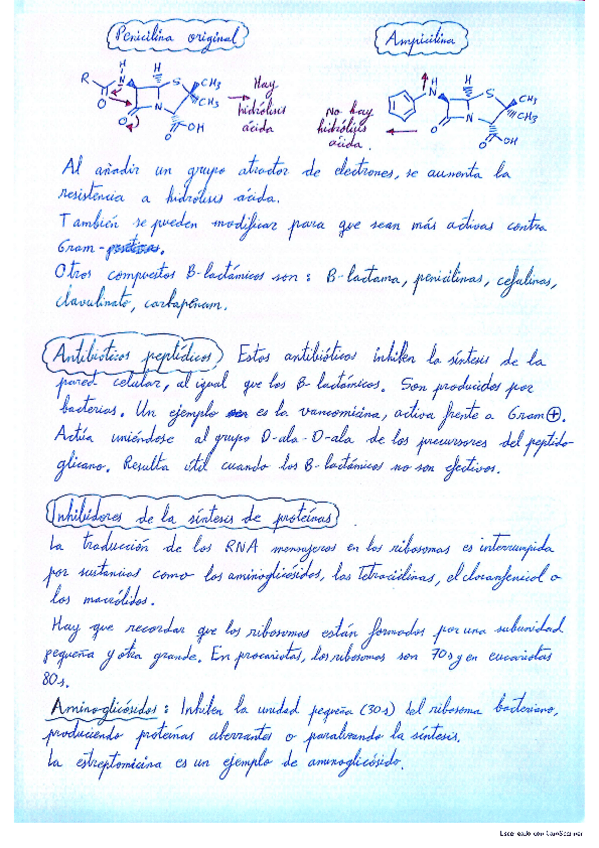 Penicilina original
Ampicilina
R
H
N
H
S
CH3
CH3
O
O
N
O
OH
Hay
hidrólisis
ácida
No hay
hidrólisis
ácida.
H
N
H
S
CH3
CH3
O
N
O
OH
Al añadir un grupo atractor de electrones, se aumenta la
resistencia a hidrólisis ácida.
También se pueden modificar para que sean más activas contra
Gram-
Otros compuestos B-lactámicos son: B-lactama, penicilinas, cefalinas,
clavulinato, carbapenam.
Antibióticos peptídicos Estos antibióticos inhiben la síntesis de la
pared celular, al igual que los B-lactánicos. Son producidos por
bacterias. Un ejemplo es la vancomicina, activa frente a Gram⊕.
Actúa uniéndose al grupo D-ala-D-ala de los precursores del peptido
glicano. Resulta útil cuando los B-lactámicos no son efectivos.
Inhibidores de la síntesis de proteínas
La traducción de los RNA mensajeros en los ribosomas es interrumpida
por sustancias como los aminoglicósidos, las Tetraciclinas, el cloranfenicol o
los macrólidos.
Hay que recordar que los ribosomas están formados por una subunidad
pequeña y otra grande. En procariotas, los ribosomas son 70s y en eucariotas
80s.
Aminoglicósidos: Inhiben la unidad pequeña (30s) del ribosoma bacteriano,
produciendo proteínas aberrantes o paralizando la síntesis.
La estreptomicina es un ejemplo de aminoglicósido.
Escaneado con CamScanner